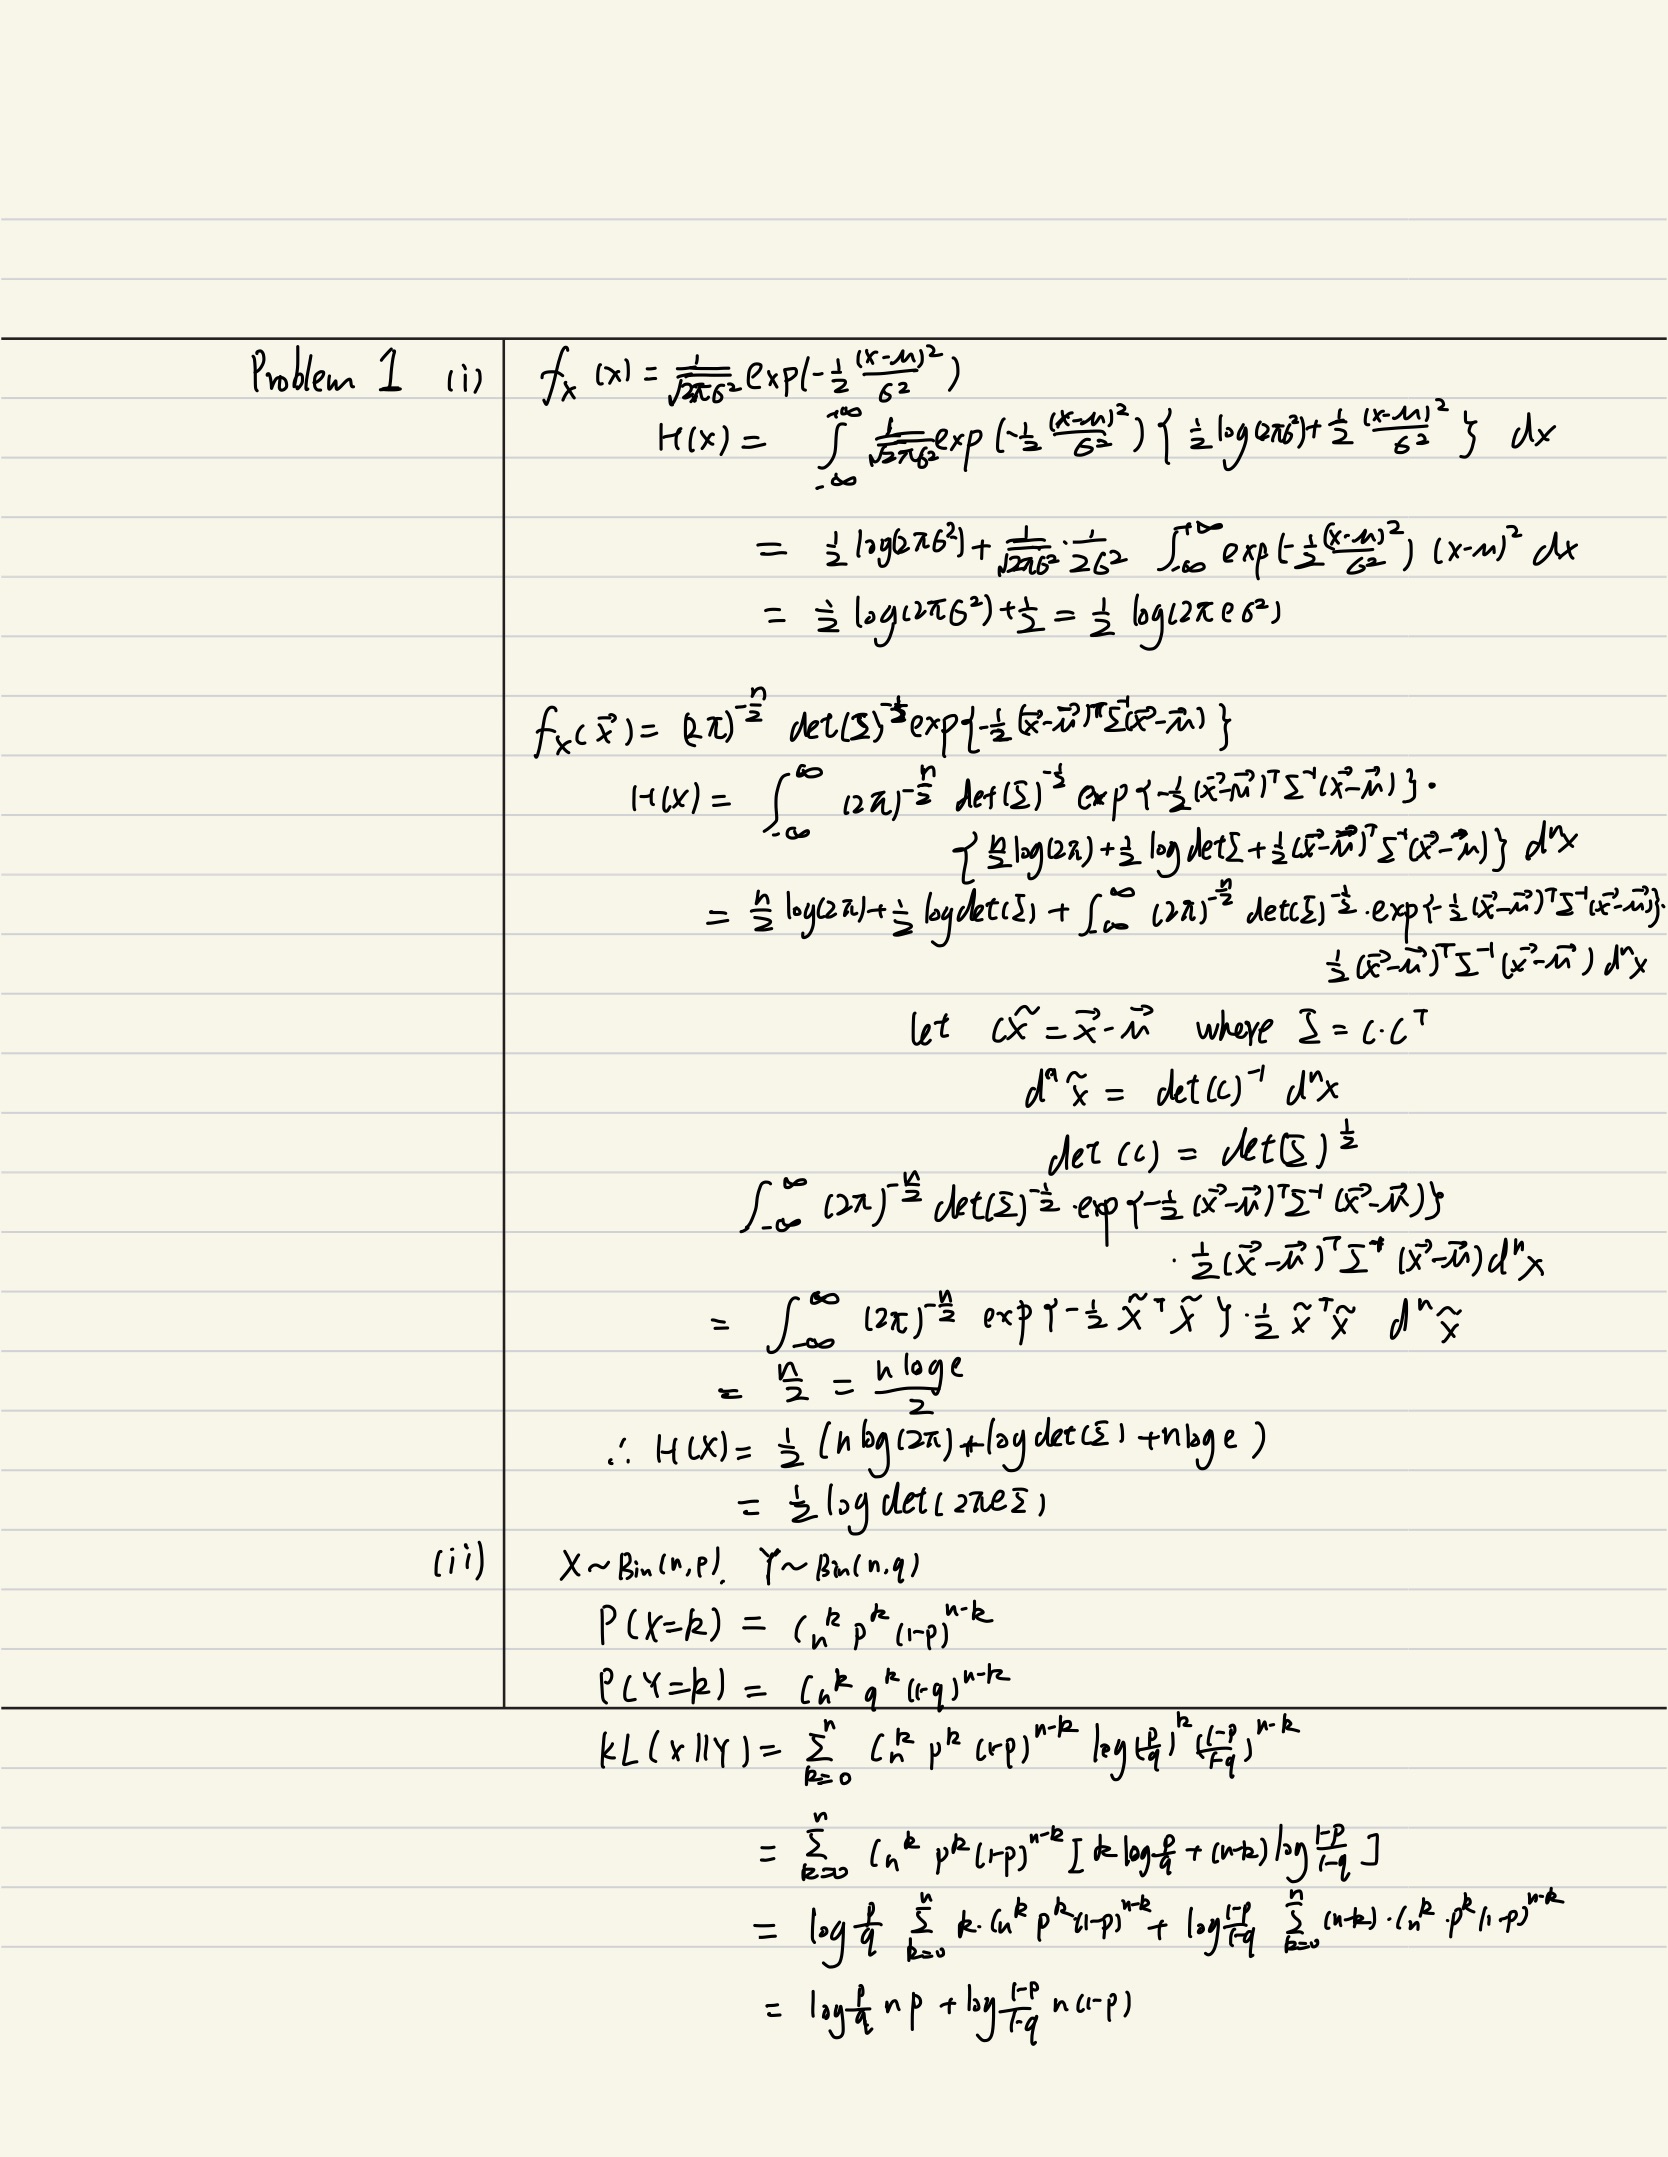 Problem 1 (i) f_X (x) = 1/√(2πσ²) exp(-1/2 (x-μ)²/σ²)
H(X) = ∫_{-∞}^{+∞} 1/√(2πσ²) exp(-1/2 (x-μ)²/σ²) { 1/2 log(2πσ²) + 1/2 (x-μ)²/σ² } dx
= 1/2 log(2πσ²) + 1/√(2πσ²) · 1/2σ² ∫_{-∞}^{+∞} exp(-1/2 (x-μ)²/σ²) (x-μ)² dx
= 1/2 log(2πσ²) + 1/2 = 1/2 log(2πeσ²)
f_X(x⃗) = (2π)^{-n/2} det(Σ)^{-1/2} exp{-1/2 (x⃗-μ⃗)^T Σ^{-1}(x⃗-μ⃗)}
H(X) = ∫_{-∞}^{∞} (2π)^{-n/2} det(Σ)^{-1/2} exp{-1/2 (x⃗-μ⃗)^T Σ^{-1}(x⃗-μ⃗)}·
{n/2 log(2π) + 1/2 log detΣ + 1/2 (x⃗-μ⃗)^T Σ^{-1}(x⃗-μ⃗)} dⁿx
= n/2 log(2π) + 1/2 log det(Σ) + ∫_{-∞}^{∞} (2π)^{-n/2} det(Σ)^{-1/2} · exp{-1/2 (x⃗-μ⃗)^T Σ^{-1}(x⃗-μ⃗)}·
1/2 (x⃗-μ⃗)^T Σ^{-1}(x⃗-μ⃗) dⁿx
let Cx̃ = x⃗-μ⃗ where Σ = C·C^T
dⁿx̃ = det(C)^{-1} dⁿx
det(C) = det(Σ)^{1/2}
∫_{-∞}^{∞} (2π)^{-n/2} det(Σ)^{-1/2} · exp{-1/2 (x⃗-μ⃗)^T Σ^{-1}(x⃗-μ⃗)}
· 1/2 (x⃗-μ⃗)^T Σ^{-1}(x⃗-μ⃗) dⁿx
= ∫_{-∞}^{∞} (2π)^{-n/2} exp{-1/2 x̃^T x̃} · 1/2 x̃^T x̃ dⁿx̃
= n/2 = n log e / 2
∴ H(X) = 1/2 (n log(2π) + log det(Σ) + n log e)
= 1/2 log det(2πeΣ)
(ii) X ~ Bin(n,p). Y ~ Bin(n,q)
P(X=k) = C_n^k p^k (1-p)^{n-k}
P(Y=k) = C_n^k q^k (1-q)^{n-k}
KL(X||Y) = Σ_{k=0}^{n} C_n^k p^k (1-p)^{n-k} log (p/q)^k ((1-p)/(1-q))^{n-k}
= Σ_{k=0}^{n} C_n^k p^k (1-p)^{n-k} [k log p/q + (n-k) log (1-p)/(1-q)]
= log p/q Σ_{k=0}^{n} k·C_n^k p^k (1-p)^{n-k} + log (1-p)/(1-q) Σ_{k=0}^{n} (n-k)·C_n^k · p^k (1-p)^{n-k}
= log p/q np + log (1-p)/(1-q) n(1-p)